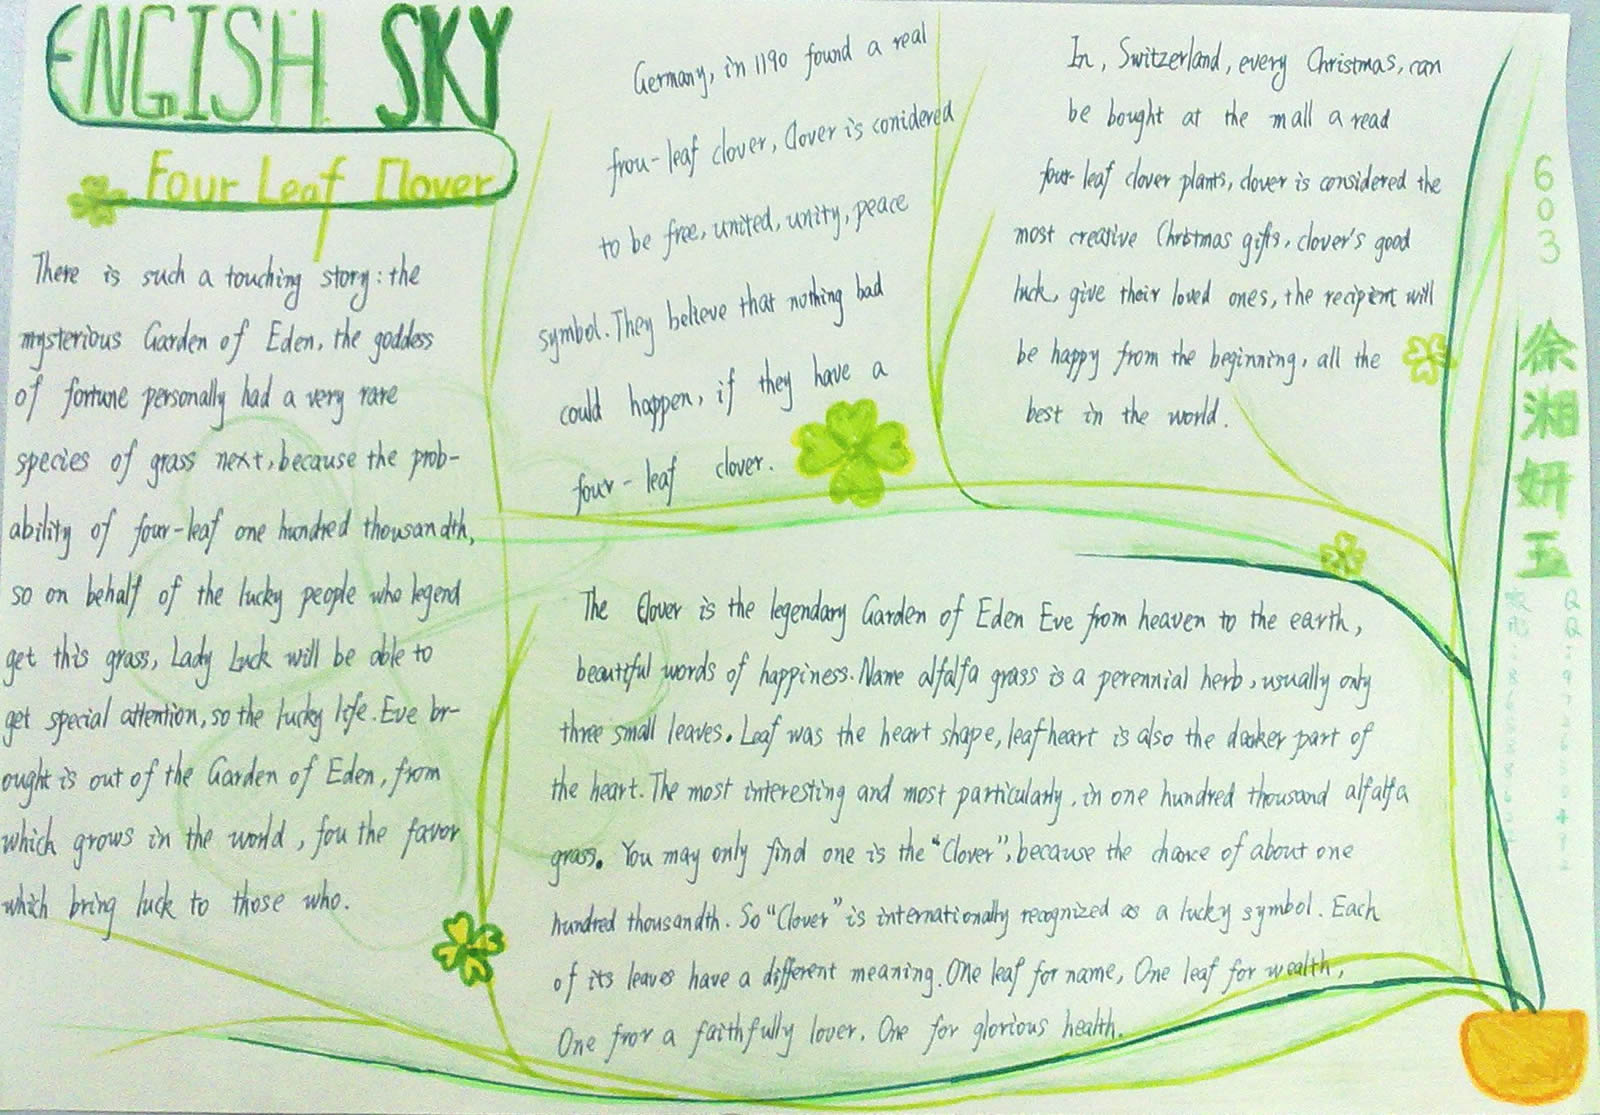 ENGISH SKY
Four Leaf Clover
There is such a touching story: the
mysterious Garden of Eden, the goddess
of fortune personally had a very rare
species of grass next, because the prob-
ability of four-leaf one hundred thousandth,
so on behalf of the lucky people who legend
get this grass, Lady Luck will be able to
get special attention, so the lucky life. Eve br-
ought is out of the Garden of Eden, from
which grows in the world, fou the favor
which bring luck to those who.
Germany, in 1190 found a real
frou-leaf clover, Clover is conidered
to be free, united, unity, peace
symbol. They believe that nothing bad
could happen, if they have a
four-leaf clover.
In, Switzerland, every Christmas, can
be bought at the mall a read
four-leaf clover plants, clover is considered the
most creative Christmas gifts, clover's good
luck, give their loved ones, the recipient will
be happy from the beginning, all the
best in the world.
The Clover is the legendary Garden of Eden Eve from heaven to the earth,
beautiful words of happiness. Name alfalfa grass is a perennial herb, usually only
three small leaves. Leaf was the heart shape, leaf heart is also the daoker part of
the heart. The most interesting and most particularly, in one hundred thousand alfalfa
grass. You may only find one is the "Clover", because the chance of about one
hundred thousandth. So "Clover" is internationally recognized as a lucky symbol. Each
of its leaves have a different meaning. One leaf for name, One leaf for wealth,
One fror a faithfully lover, One for glorious health.
603 徐湘妍玉
QQ